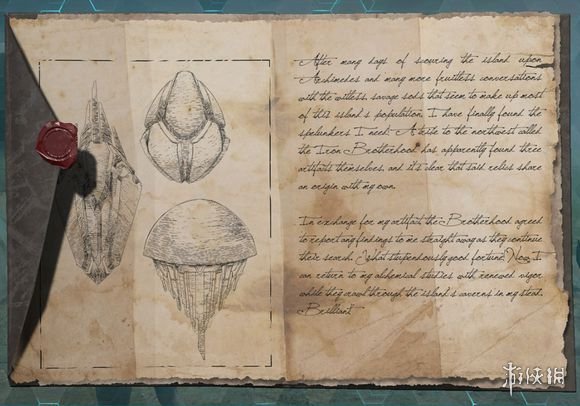 After many days of scouring the island upon
Archimedes and many more fruitless conversations
with the witless, savage sods that seem to make up most
of this island's population, I have finally found the
spelunkers I need. A tribe to the northwest called
the Iron Brotherhood has apparently found three
artifacts themselves, and it's clear that said relics share
an origin with my own.
In exchange for my artifact, the Brotherhood agreed
to report any findings to me straight away as they continue
their search. What stupendously good fortune! Now I
can return to my alchemical studies with renewed vigor
while they crawl through the island's caverns in my stead.
Brilliant
游侠网